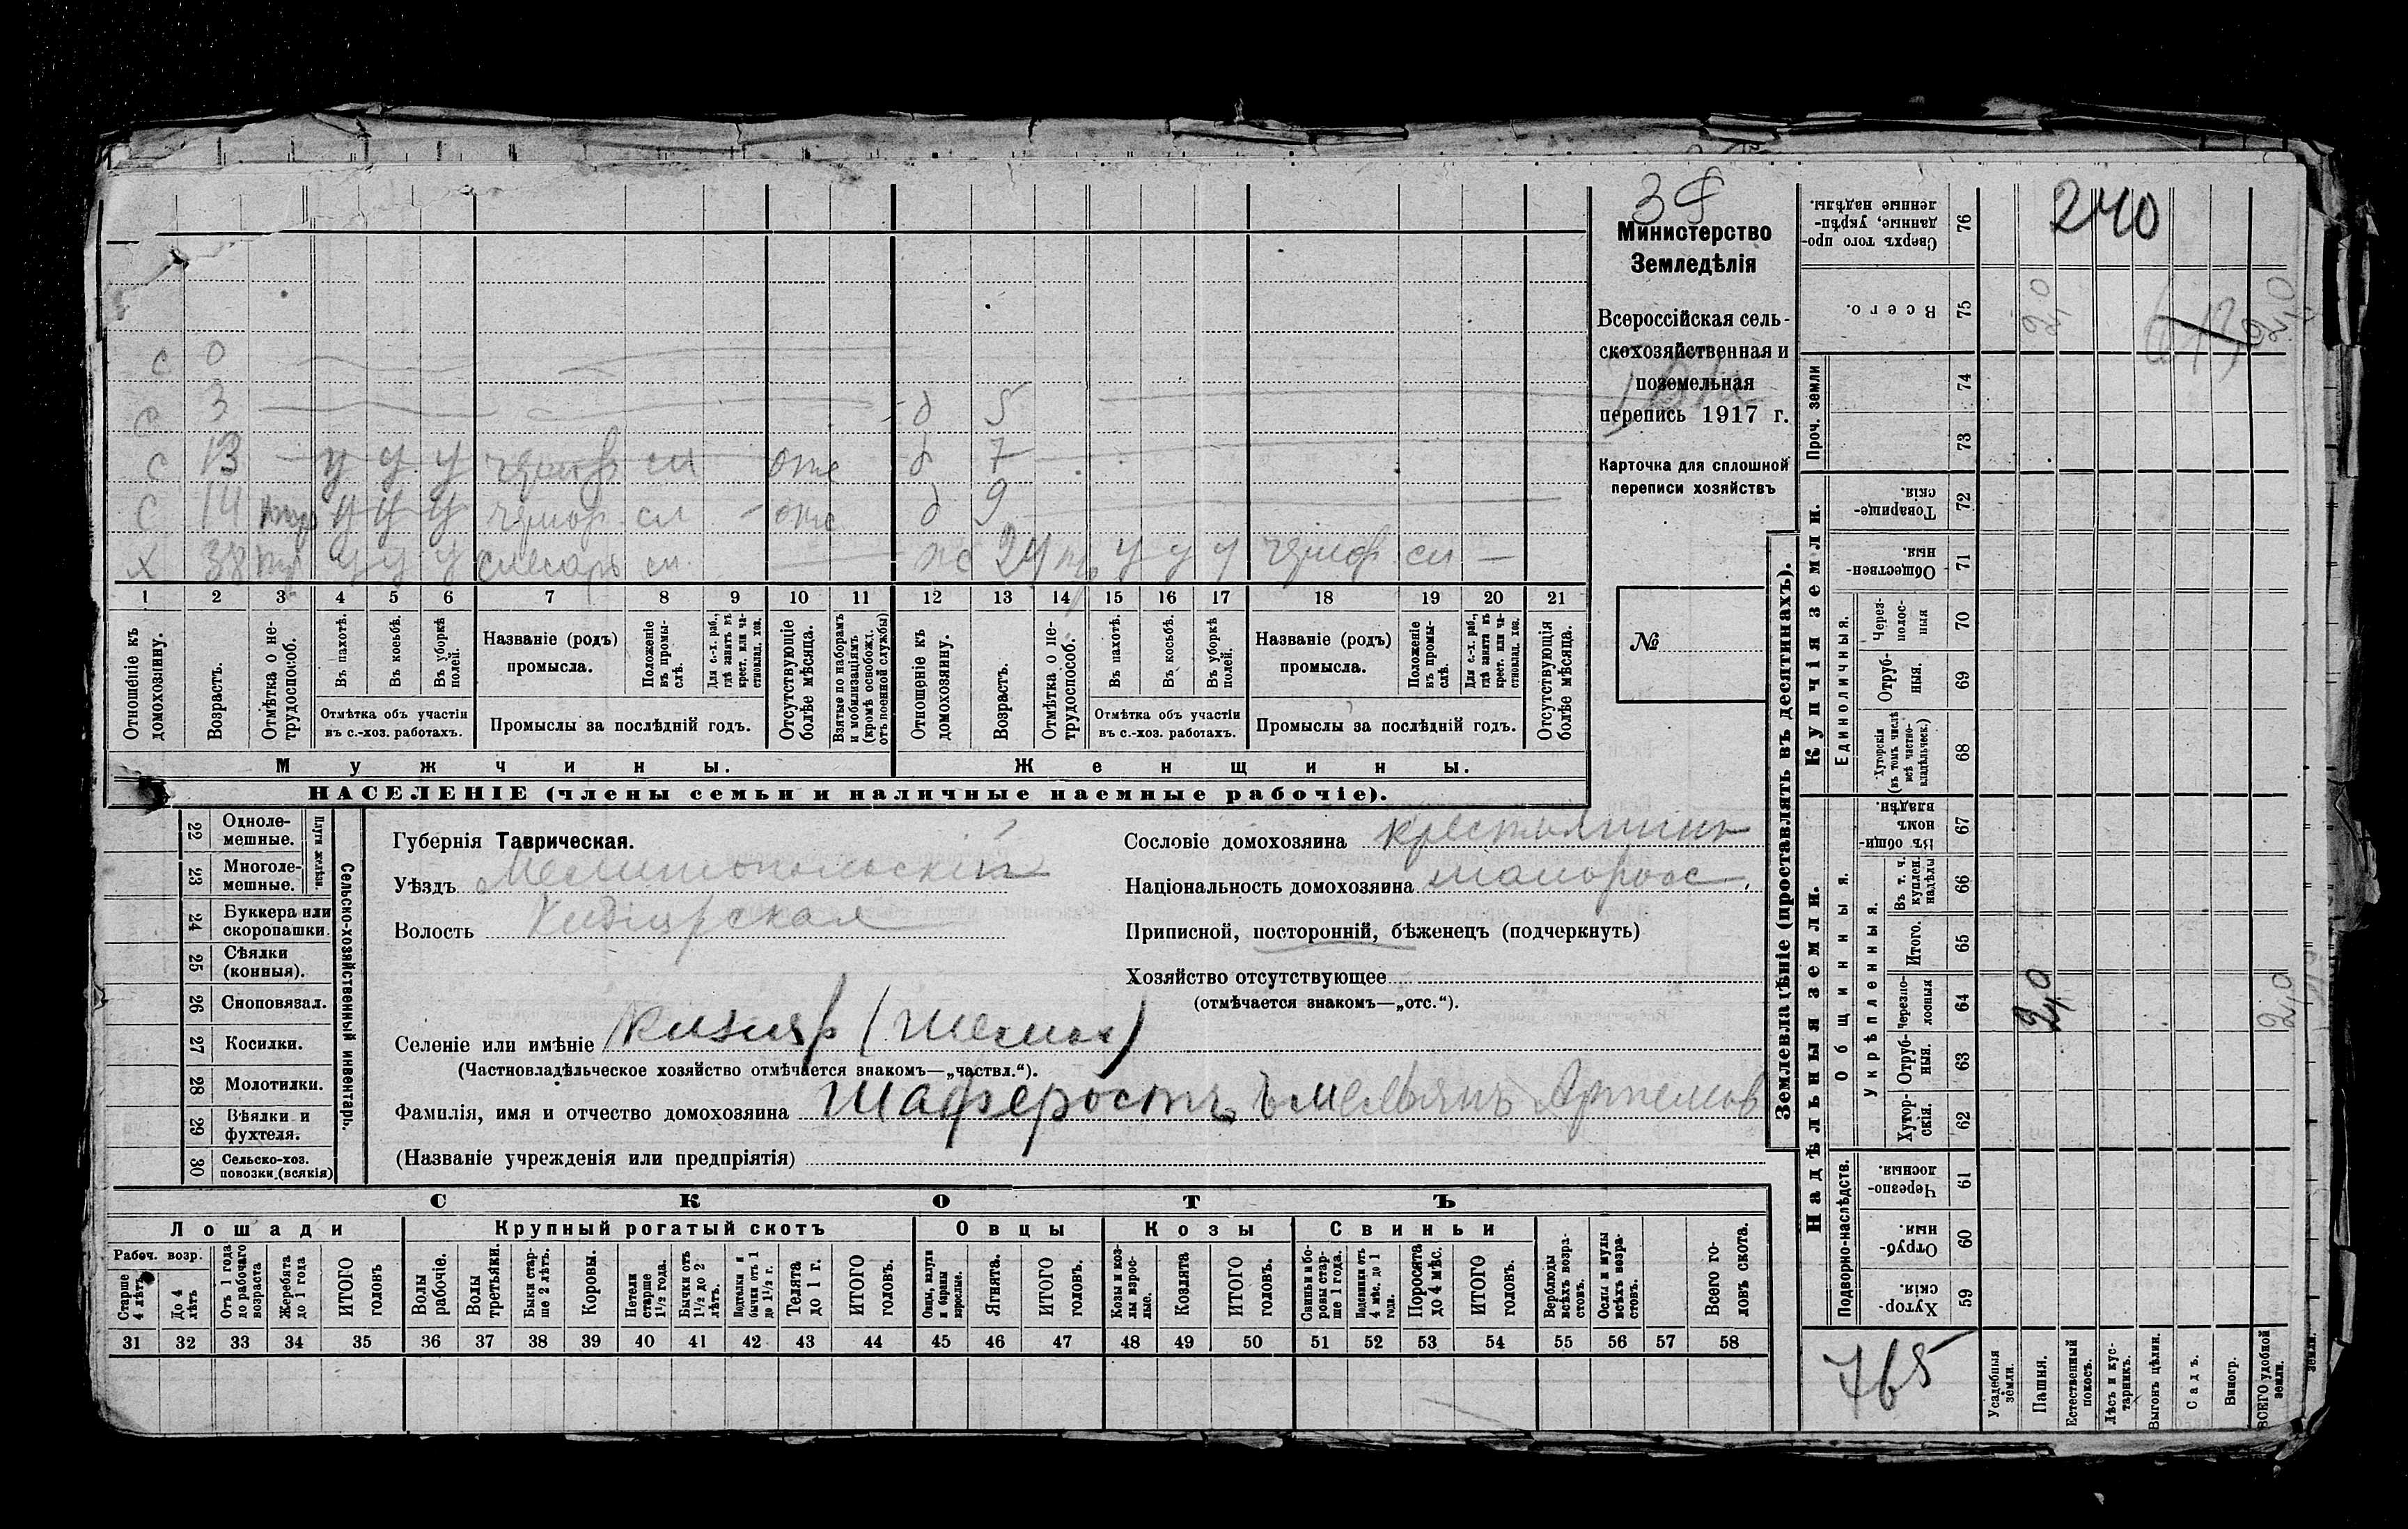 Министерство
Земледѣлія
Всероссійская сель-
скохозяйственная и
поземельная
перепись 1917 г.
Карточка для сплошной
переписи хозяйствъ
№
240
с 0
с 3 д 5
с 13 у у у сл отс д 7
с 14 у у у сл отс д 9
х 38 у у у слесарь сл ж 24 у у у сл
1 2 3 4 5 6 7 8 9 10 11 12 13 14 15 16 17 18 19 20 21
Отношеніе къ домохозяину.
Возрастъ.
Отмѣтка о не-трудоспособ.
Въ пахотѣ.
Въ косьбѣ.
Въ уборкѣ полей.
Отмѣтка объ участіи
въ с.-хоз. работахъ.
Названіе (родъ)
промысла.
Положеніе въ промы-слѣ.
Для с.-х. раб., гдѣ занятъ въ крест. или ча-стновлад. хоз.
Промыслы за послѣдній годъ.
Отсутствующіе болѣе мѣсяца.
Взятые по наборамъ и мобилизаціямъ (кромѣ освобожд. отъ военной службы)
Отношеніе къ домохозяину.
Возрастъ.
Отмѣтка о не-трудоспособ.
Въ пахотѣ.
Въ косьбѣ.
Въ уборкѣ полей.
Отмѣтка объ участіи
въ с.-хоз. работахъ.
Названіе (родъ)
промысла.
Положеніе въ промы-слѣ.
Для с.-х. раб., гдѣ занята въ крест. или ча-стновлад. хоз.
Промыслы за послѣдній годъ.
Отсутствующія болѣе мѣсяца.
Мужчины.
Женщины.
НАСЕЛЕНІЕ (члены семьи и наличные наемные рабочіе).
Сельско-хозяйственный инвентарь.
Плуги желѣзн.
22 Одноле-мешные.
23 Многоле-мешные.
24 Буккера или скоропашки.
25 Сѣялки (конныя).
26 Сноповязал.
27 Косилки.
28 Молотилки.
29 Вѣялки и фухтеля.
30 Сельско-хоз. повозки (всякія)
Губернія Таврическая.
Уѣздъ Мелитопольскій
Волость
Сословіе домохозяина крестьянинъ
Національность домохозяина малоросс.
Приписной, посторонній, бѣженецъ (подчеркнуть)
Хозяйство отсутствующее
(отмѣчается знакомъ—„отс.“).
Селеніе или имѣніе Кизияр
(Частновладѣльческое хозяйство отмѣчается знакомъ—„частвл.“).
Фамилія, имя и отчество домохозяина Шаферостъ Емельянъ Артемов
(Названіе учрежденія или предпріятія)
СКОТЪ
Лошади
Крупный рогатый скотъ
Овцы
Козы
Свиньи
Рабоч. возр.
Старше 4 лѣтъ
До 4 лѣтъ
Отъ 1 года до рабочаго возраста
Жеребята до 1 года
ИТОГО головъ
Волы рабочіе.
Волы третьяки.
Быки стар-ше 2 лѣтъ.
Коровы.
Нетели старше 1½ года.
Бычки отъ 1½ до 2 лѣтъ.
Подтелки и бычки отъ 1 до 1½ г.
Телята до 1 г.
ИТОГО головъ.
Овцы, валухи и бараны взрослые.
Ягнята.
ИТОГО головъ.
Козы и коз-лы взрос-лые.
Козлята
ИТОГО головъ.
Свиньи и бо-ровы стар-ше 1 года.
Подсвинки отъ 4 мѣс. до 1 года.
Поросята до 4 мѣс.
ИТОГО головъ.
Верблюды всѣхъ возра-стовъ.
Ослы и мулы всѣхъ возра-стовъ.
Всего го-ловъ скота.
31 32 33 34 35 36 37 38 39 40 41 42 43 44 45 46 47 48 49 50 51 52 53 54 55 56 57 58
Землевладѣніе (проставлять въ десятинахъ).
Купчія земли.
Надѣльныя земли.
76 Сверхъ того про-данные, укрѣп-ленные надѣлы.
75 Всего. 2,0 2,0
Проч. земли
74
73
72 Товарище-скія.
71 Обществен-ныя.
Единоличныя.
70 Через-полос-ныя
69 Отруб-ныя.
68 Хуторскія (въ томъ числѣ всѣ частно-владѣльческ.)
67 Въ общи-номъ владѣн.
Общинныя.
Укрѣпленныя.
66 Въ т. ч. куплен. надѣлы
65 Итого.
64 Черезпо-лосныя 2,0 2,0
63 Отруб-ныя.
62 Хутор-скія.
Подворно-наслѣдств.
61 Черезпо-лосныя.
60 Отруб-ныя.
59 Хутор-скія.
765
Усадебныя земли.
Пашня.
Естественный покосъ.
Лѣсъ и кус-тарникъ.
Выгонъ цѣлин.
Садъ.
Виногр.
ВСЕГО удобной земли.
земли.